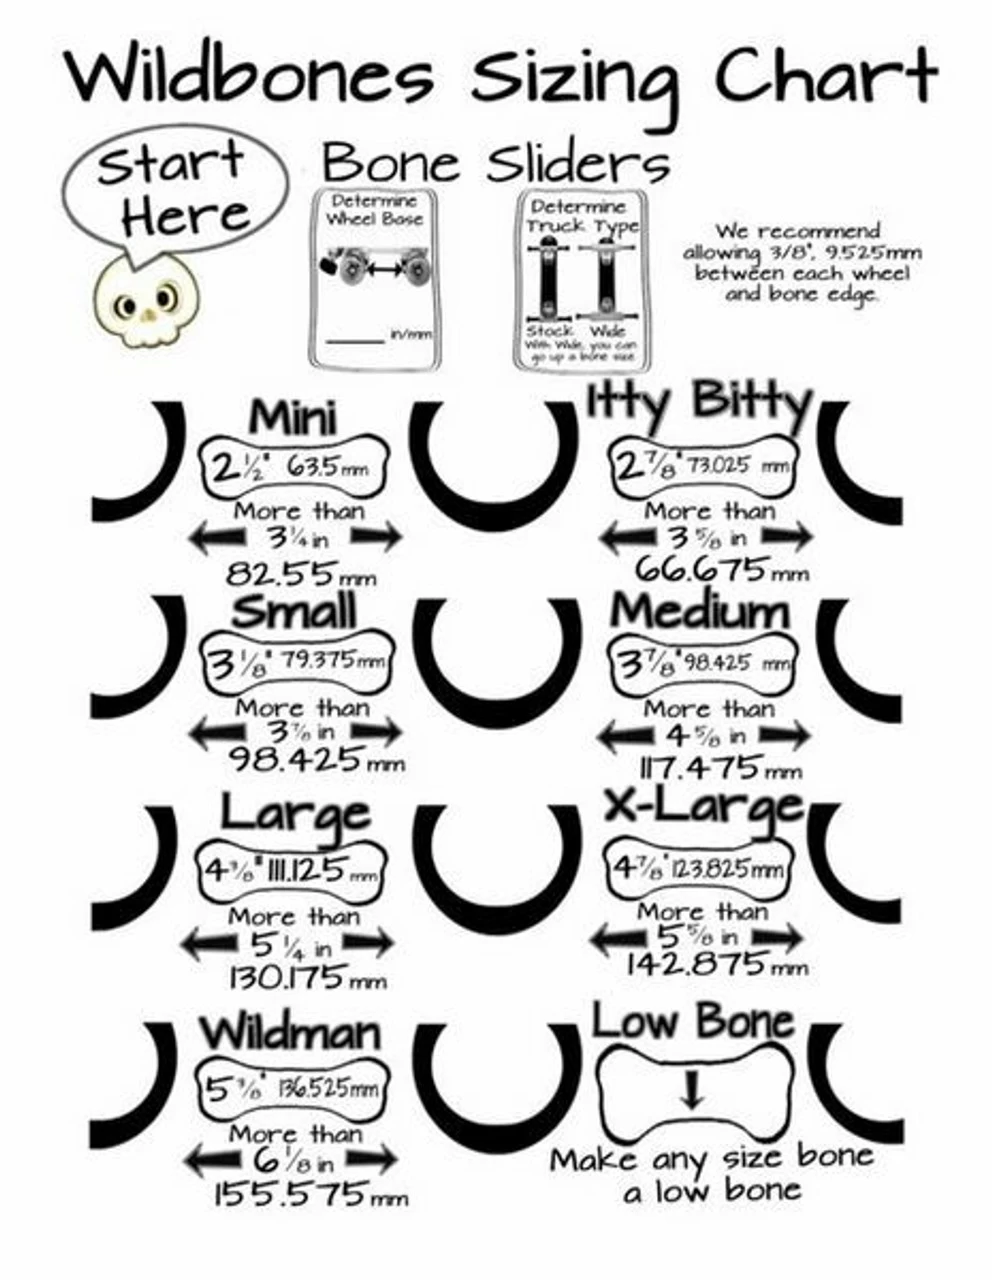 Wildbones Sizing Chart
Start
Here
Bone Sliders
Determine
Wheel Base
in/mm
Determine
Truck Type
Stock Wide
With Wide, you can
go up a bone size
We recommend
allowing 3/8", 9.525mm
between each wheel
and bone edge.
Mini
2 1/2" 63.5 mm
More than
3 1/4 in
82.55 mm
Itty Bitty
2 7/8" 73.025 mm
More than
3 5/8 in
66.675 mm
Small
3 1/8" 79.375 mm
More than
3 7/8 in
98.425 mm
Medium
3 7/8" 98.425 mm
More than
4 5/8 in
117.475 mm
Large
4 3/8" 111.125 mm
More than
5 1/4 in
130.175 mm
X-Large
4 7/8" 123.825 mm
More than
5 5/8 in
142.875 mm
Wildman
5 3/8" 136.525 mm
More than
6 1/8 in
155.575 mm
Low Bone
Make any size bone
a low bone